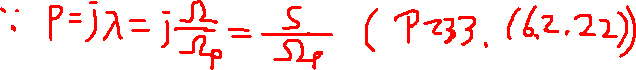 ∵ p=jλ=j Ω/Ωp = S/Ωp ( P233. (6.2.22))